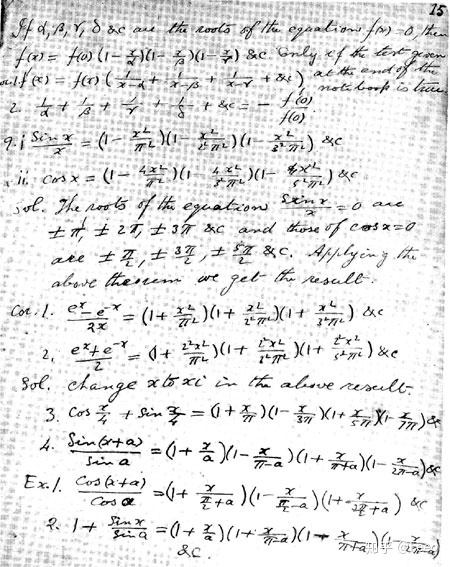 15
If α, β, γ, δ &c are the roots of the equation f(x)=0, then
f(x) = f(0) (1 - x/α)(1 - x/β)(1 - x/γ) &c. Only if the test given
at the end of the
notebook is true
f'(x) = f(x) (1/(x-α) + 1/(x-β) + 1/(x-γ) + &c)
2. 1/α + 1/β + 1/γ + 1/δ + &c = - f'(0)/f(0).
9. i Sin x/x = (1 - x²/π²)(1 - x²/2²π²)(1 - x²/3²π²) &c
ii. cos x = (1 - 4x²/π²)(1 - 4x²/3²π²)(1 - 4x²/5²π²) &c
Sol. The roots of the equation Sin x/x = 0 are
±π, ±2π, ±3π &c and those of cos x = 0
are ±π/2, ±3π/2, ±5π/2 &c. Applying the
above theorem we get the result.
Cor. 1. (e^x - e^-x)/2x = (1 + x²/π²)(1 + x²/2²π²)(1 + x²/3²π²) &c
2. (e^x + e^-x)/2 = (1 + 2²x²/π²)(1 + 2²x²/3²π²)(1 + 2²x²/5²π²) &c
Sol. change x to xi in the above result.
3. Cos x/4 + Sin x/4 = (1 + x/π)(1 - x/3π)(1 + x/5π)(1 - x/7π) &c
4. Sin(x+a)/Sin a = (1 + x/a)(1 - x/(π-a))(1 + x/(π+a))(1 - x/(2π-a)) &c
Ex. 1. Cos(x+a)/Cos a = (1 + x/(π/2+a))(1 - x/(π/2-a))(1 + x/(3π/2+a)) &c
2. 1 + Sin x/Sin a = (1 + x/a)(1 + x/(π-a))(1 - x/(π+a))(1 - x/(2π-a))
&c.
知乎